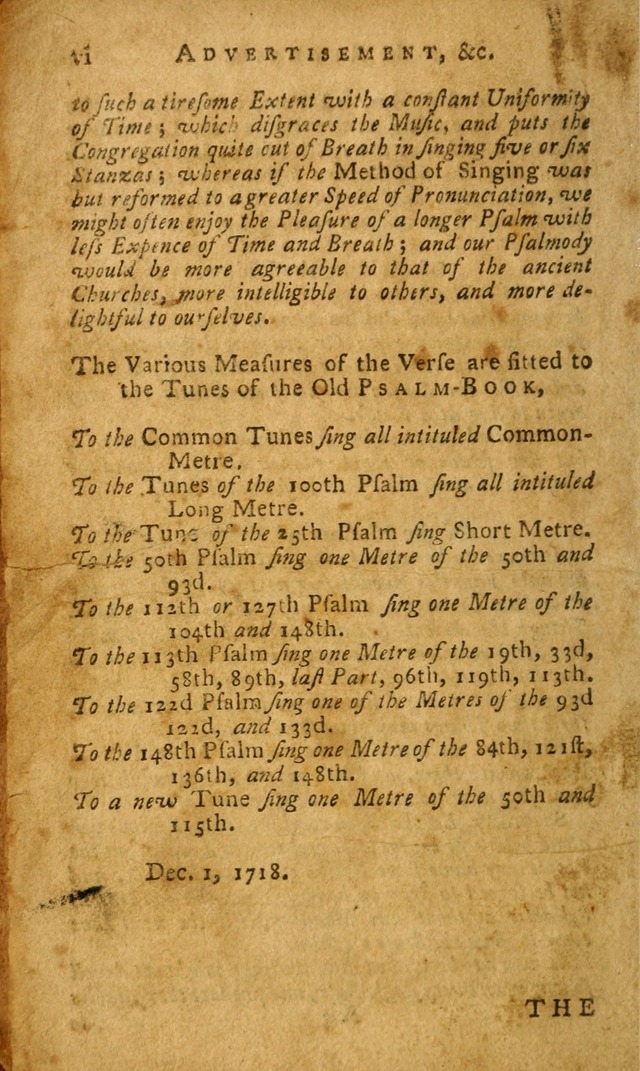 vi ADVERTISEMENT, &c.
to ſuch a tireſome Extent with a conſtant Uniformity
of Time; which diſgraces the Muſic, and puts the
Congregation quite out of Breath in ſinging five or ſix
Stanzas; whereas if the Method of Singing was
but reformed to a greater Speed of Pronunciation, we
might often enjoy the Pleaſure of a longer Pſalm with
leſs Expence of Time and Breath; and our Pſalmody
would be more agreeable to that of the ancient
Churches, more intelligible to others, and more de-
lightful to ourſelves.
The Various Meaſures of the Verſe are fitted to
the Tunes of the Old PSALM-BOOK,
To the Common Tunes ſing all intituled Common-
Metre.
To the Tunes of the 100th Pſalm ſing all intituled
Long Metre.
To the Tune of the 25th Pſalm ſing Short Metre.
To the 50th Pſalm ſing one Metre of the 50th and
93d.
To the 112th or 127th Pſalm ſing one Metre of the
104th and 148th.
To the 113th Pſalm ſing one Metre of the 19th, 33d,
58th, 89th, laſt Part, 96th, 119th, 113th.
To the 122d Pſalm ſing one of the Metres of the 93d
122d, and 133d.
To the 148th Pſalm ſing one Metre of the 84th, 121ſt,
136th, and 148th.
To a new Tune ſing one Metre of the 50th and
115th.
Dec. 1, 1718.
THE